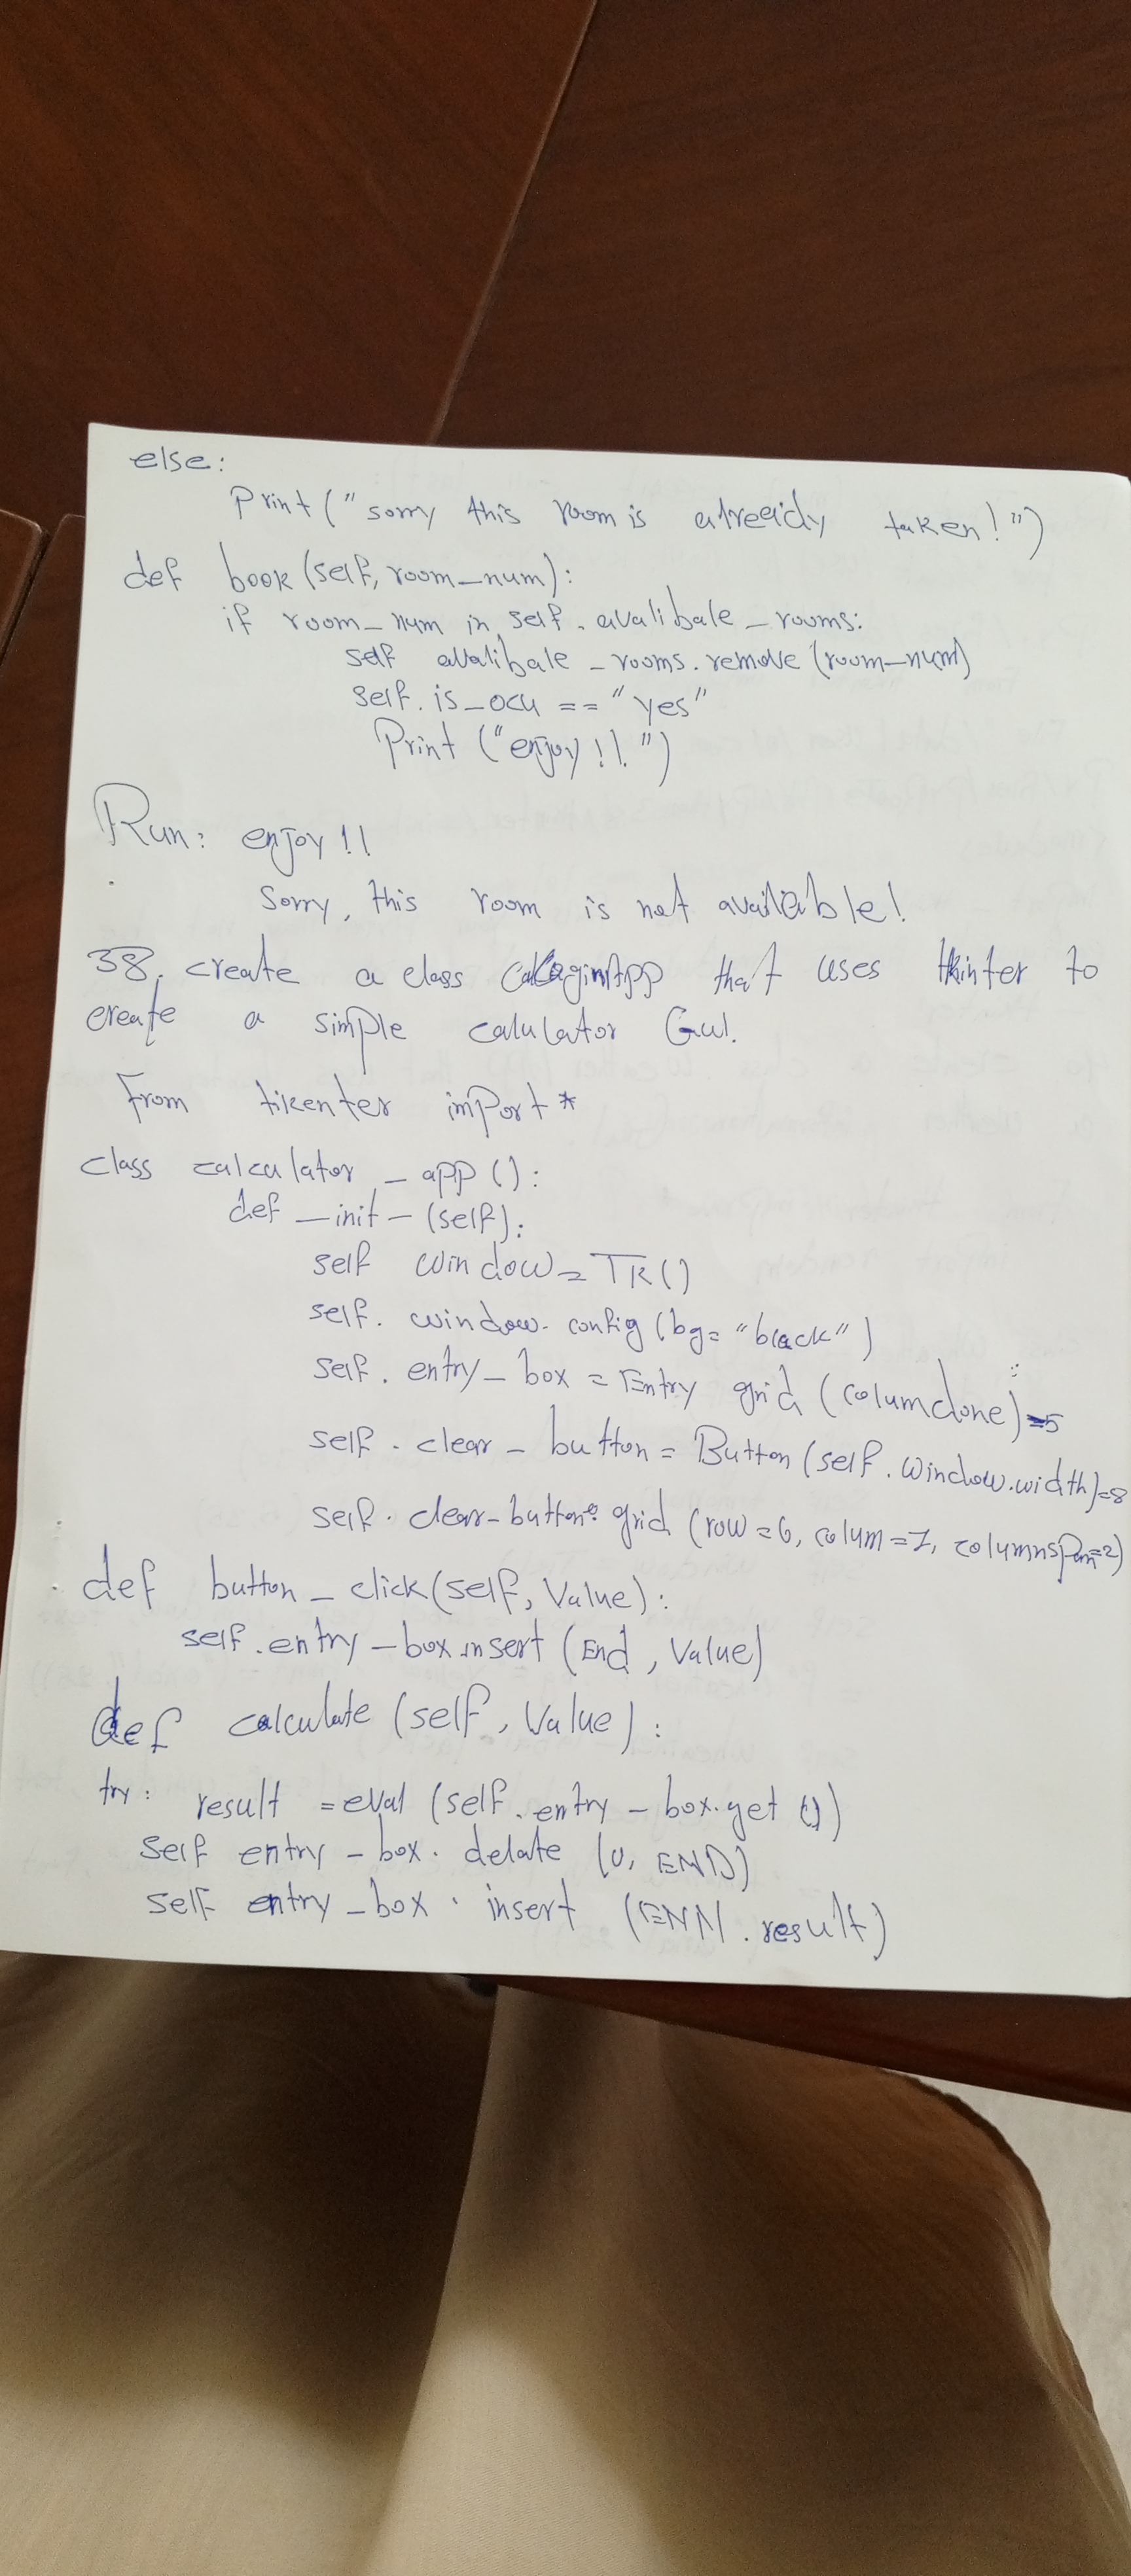 else:
Print("sorry this room is alreaidy taken!")
def book(self, room_num):
if room_num in self.avalibale_rooms:
self avalibale_rooms.remove(room_num)
self.is_ocu == "yes"
Print("enjoy!!.")
Run: enjoy!!
Sorry, this room is not available!
38. create a class that uses tkinter to
create a simple calulator Gui.
From tikenter import*
class calculator_app():
def _init_(self):
self window=TK()
self.window.config(bg="black")
self.entry_box = Entry grid (columclone)=5
self.clear_button = Button(self.window.width)=8
self.clear_button. grid (row=6, colum=7, columnspan=2)
def button_click(self, Value):
self.entry_box.insert(End, Value)
def calculate(self, Value):
try: result =eval (self.entry_box.get())
self entry_box. delate (0, END)
self entry_box. insert (ENN.result)